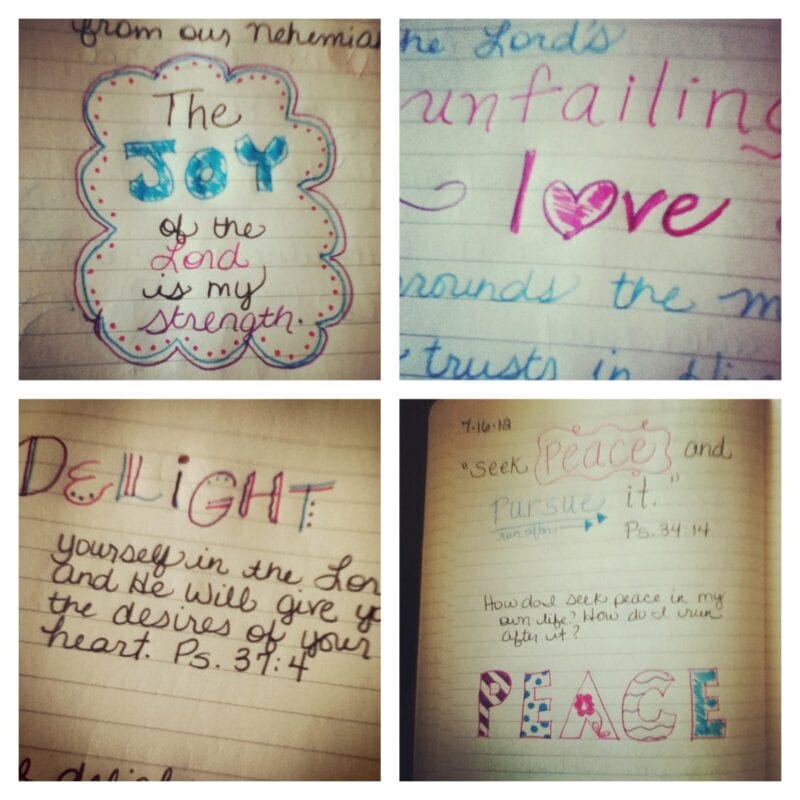 from our Nehemiah
The
JOY
of the
Lord
is my
strength.
he Lord's
unfailing
love
rounds the m
trusts in Hi
DELIGHT
yourself in the Lor
and He will give y
the desires of your
heart. Ps. 37:4
7·16·12
"seek peace and
pursue it."
run after
Ps. 34:14
How do I seek peace in my
own life? How do I run
after it?
PEACE